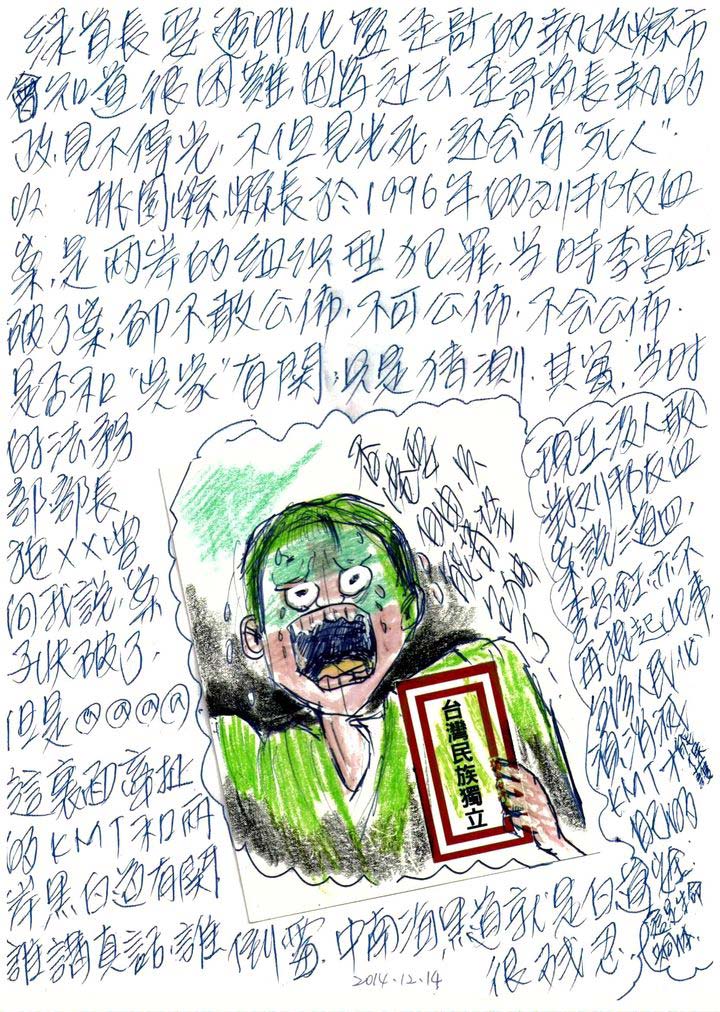 綠首長要透明化歪哥的執政縣市
會知道很困難因為过去歪哥首長執的
政,見不得光,不但見光死,还会有"死人".
桃園縣,縣長於1996年的刘邦友血
案,是两岸的組织型犯罪,当時李昌鈺
破了案,卻不敢公佈,不可公佈,不会公佈.
是否和"吳家"有關,只是猜測.其實,当时
的法務
部部長
施××曾
向我說,案
子快破了,
但是@@@@
這裏面牽扯
的KMT和兩
岸黑白道有關
誰講真話,誰倒霉,中南海,黑道就是白道
很残忍.
現在沒人敢
對刘邦友血
案說三道四,
李昌鈺亦不
再提起此事.
KMT才
台灣民族獨立
2014.12.14